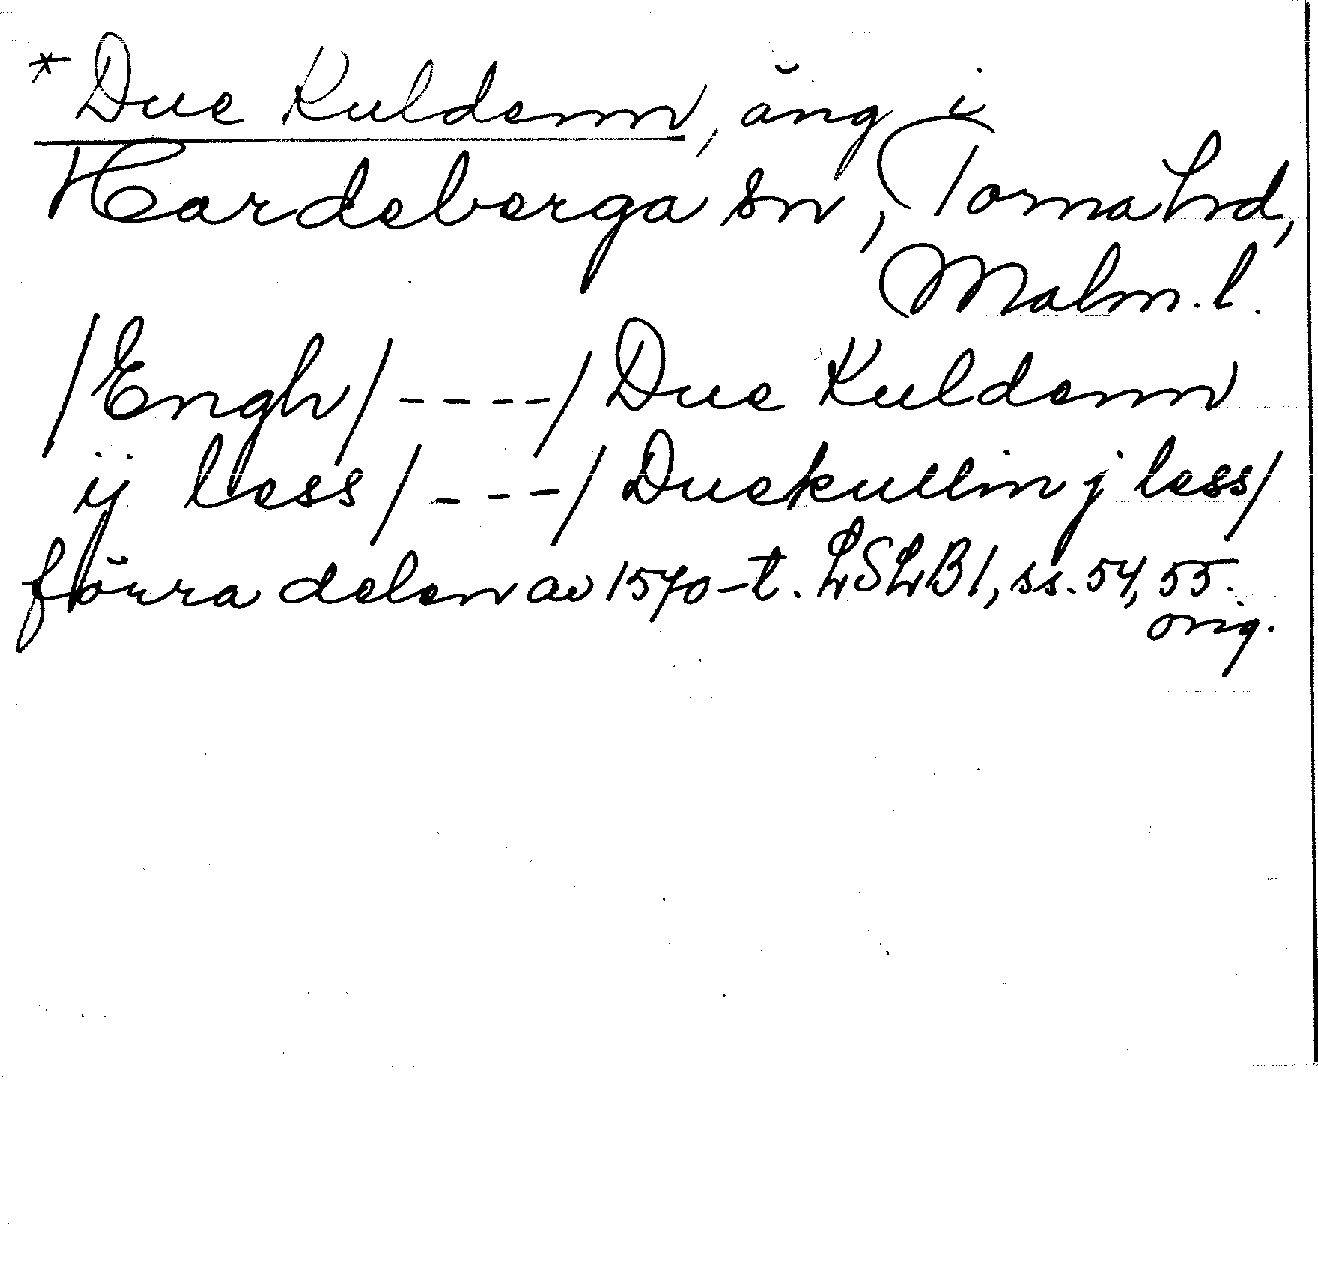 * Due Kuldenn, äng i
Hardeberga sn, Torna hd,
Malm.l.
/Engh/ ---- / Due Kuldenn
ij less / --- / Duekullin j less /
förra delen av 1570-t. LSLB I, ss. 54, 55.
orig.